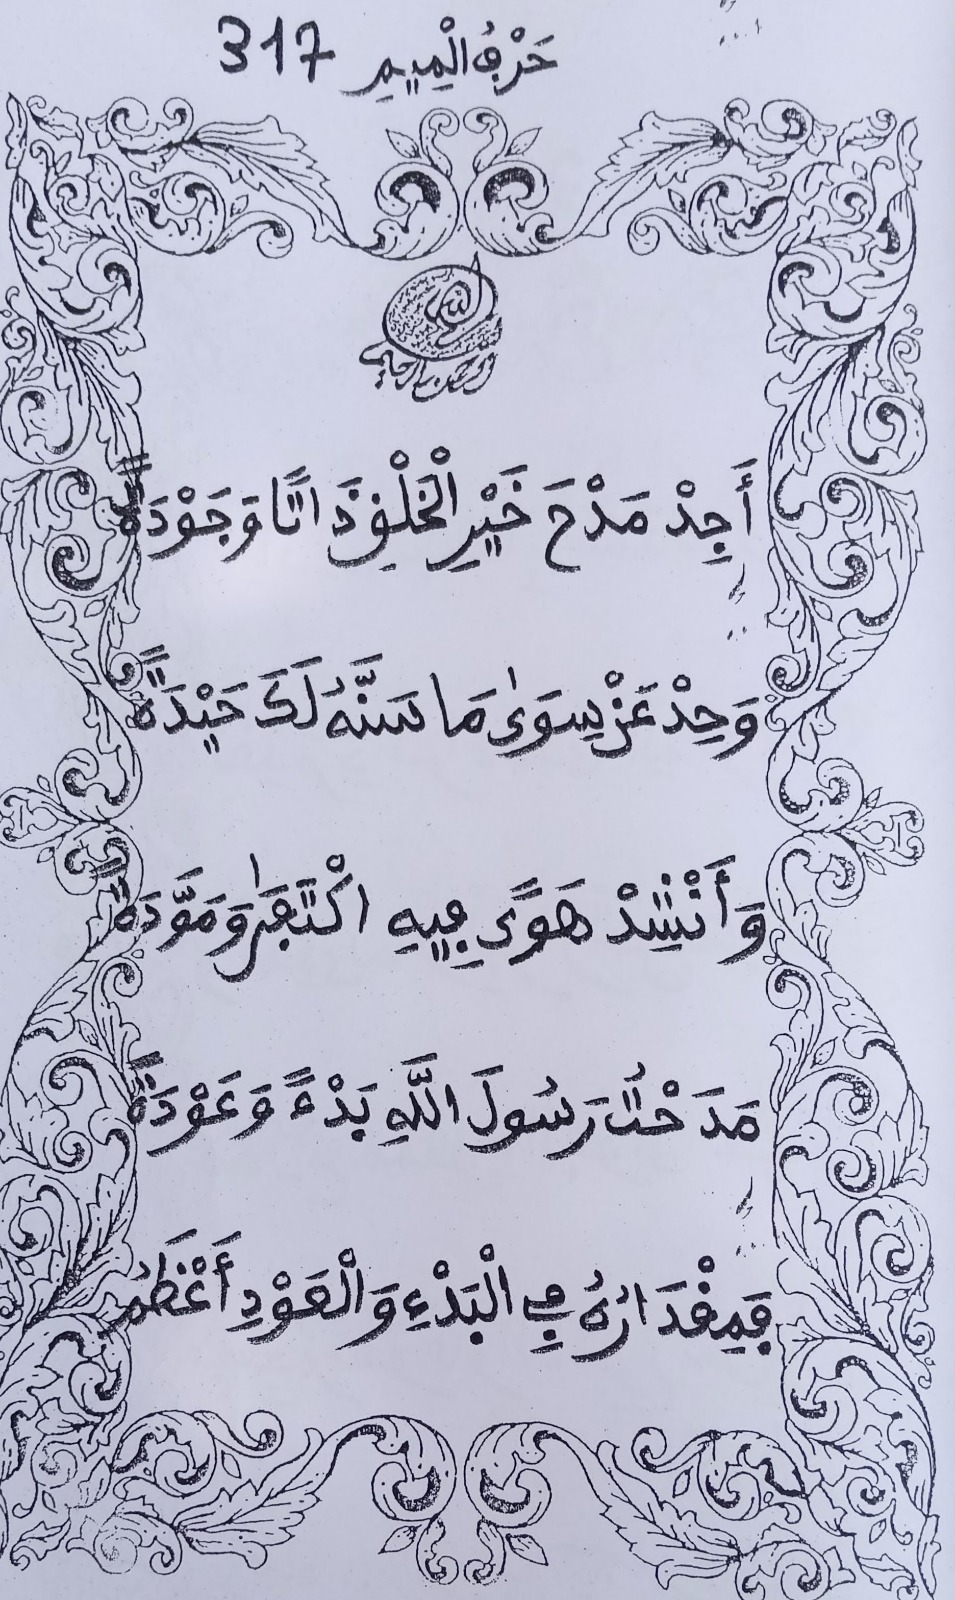 حَرْفُ الْمِيمِ 317
أَجِدْ مَدْحَ خَيْرِ الْخَلْقِ ذَاتًا وَجَوْدَةً
وَحِدْ عَنْ سِوَىٰ مَا سَنَّهُ لَكَ حَيْدَةً
وَأَنْشِدْ هَوًى فِيهِ اكْتَفَىٰ وَمَوَدَّةً
مَدَحْتُ رَسُولَ اللَّهِ بَدْءً وَعَوْدَةً
فَمِقْدَارُهُ فِي الْبَدْءِ وَالْعَوْدِ أَعْظَمُ